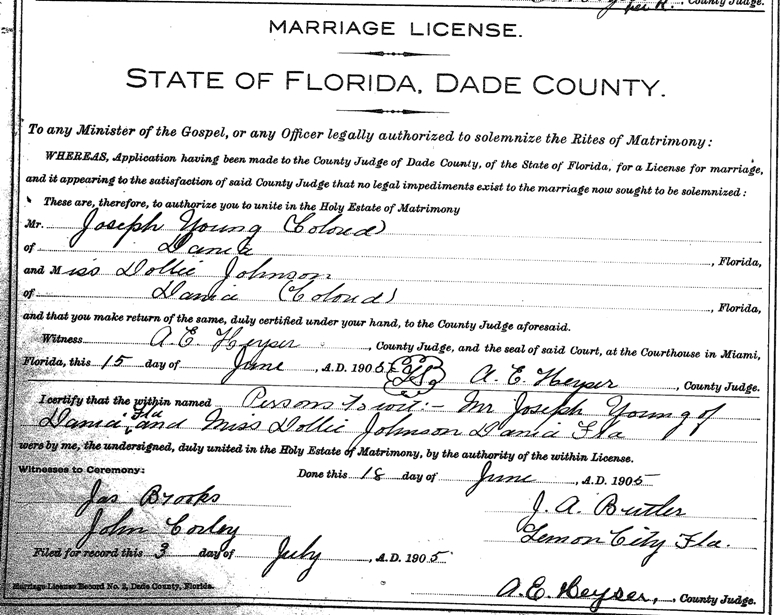 County Judge.
MARRIAGE LICENSE.
STATE OF FLORIDA, DADE COUNTY.
To any Minister of the Gospel, or any Officer legally authorized to solemnize the Rites of Matrimony:
WHEREAS, Application having been made to the County Judge of Dade County, of the State of Florida, for a License for marriage,
and it appearing to the satisfaction of said County Judge that no legal impediments exist to the marriage now sought to be solemnized:
These are, therefore, to authorize you to unite in the Holy Estate of Matrimony
Mr. Joseph Young (Colored)
of Dania, Florida,
and Miss Dollie Johnson
of Dania (Colored), Florida,
and that you make return of the same, duly certified under your hand, to the County Judge aforesaid.
Witness A. E. Heyser, County Judge, and the seal of said Court, at the Courthouse in Miami,
Florida, this 15 day of June, A.D. 1905 A. E Heyser, County Judge.
I certify that the within named Persons to wit:- Mr Joseph Young of
Dania Fla and Miss Dollie Johnson Dania Fla
were by me, the undersigned, duly united in the Holy Estate of Matrimony, by the authority of the within License.
Witnesses to Ceremony: Done this 18 day of June, A.D. 1905
Jas Brooks J. A. Butler
John Corley Lemon City Fla.
Filed for record this 3 day of July, A.D. 1905
Marriage License Record No. 2, Dade County, Florida. A. E. Heyser, County Judge.